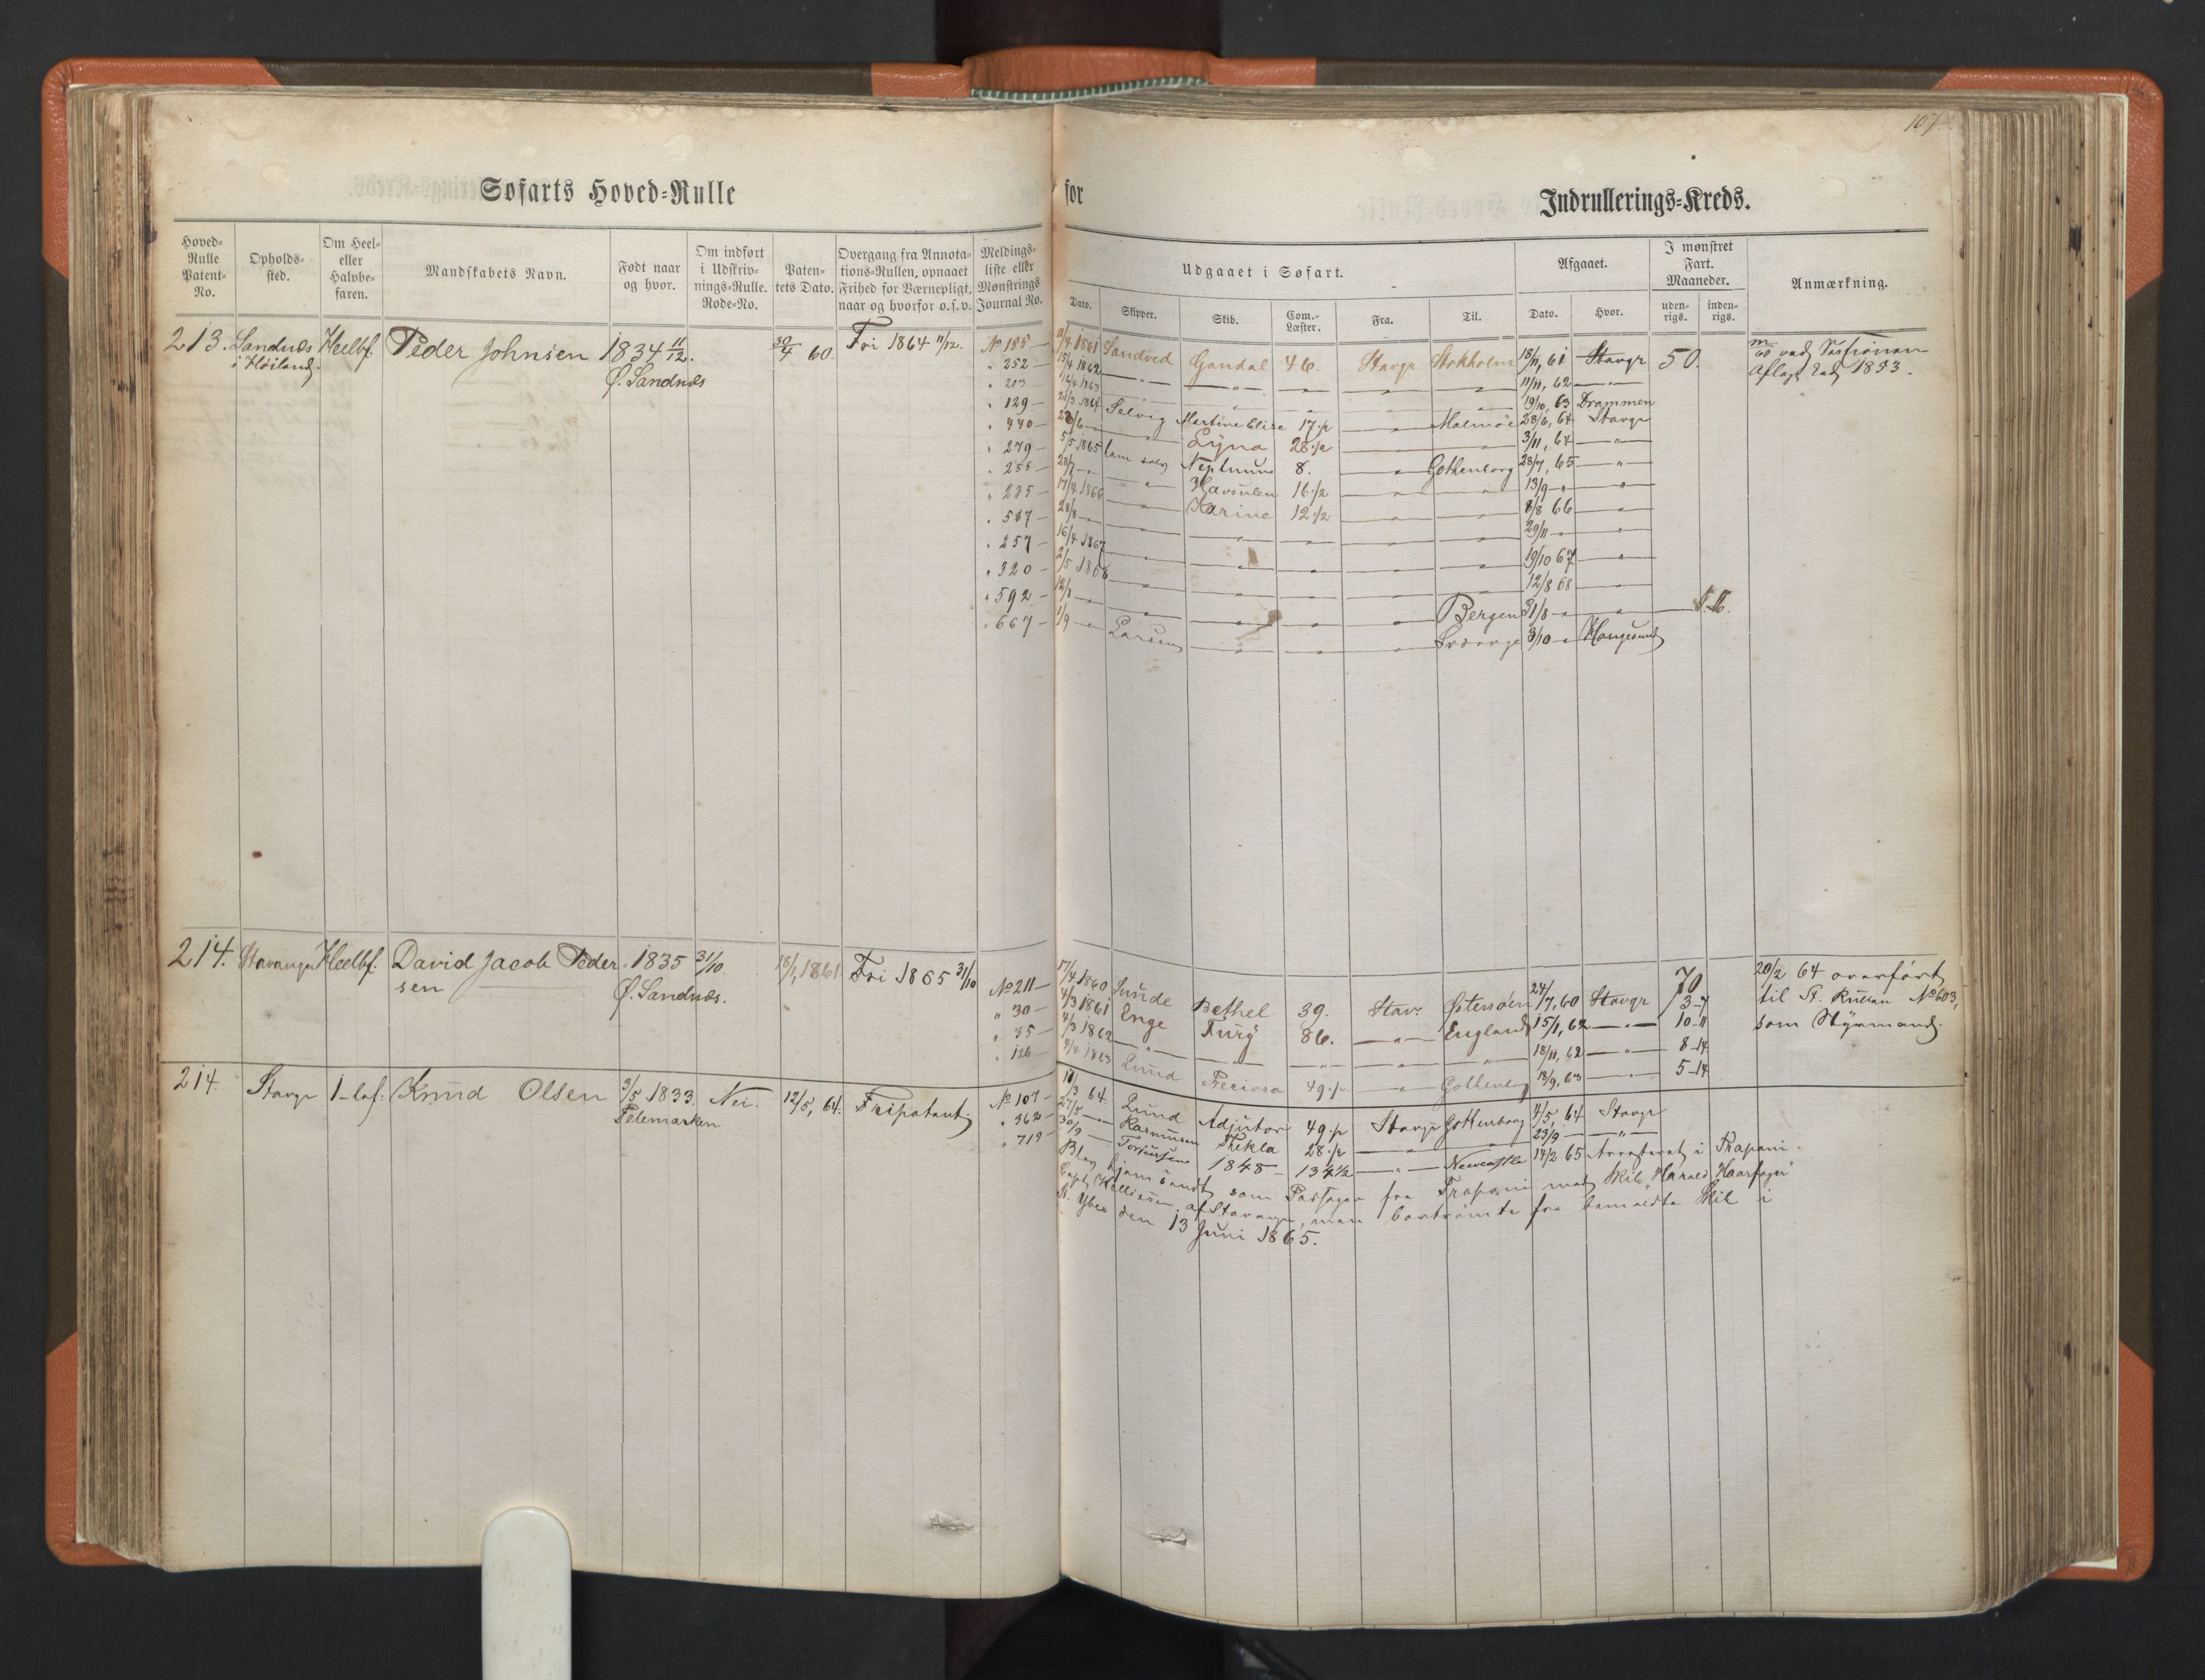 107
Søfarts Hoved-Rulle for Indrullerings-Kreds.
Hoved-Rulle Patent-No.
Opholds-sted.
Om Heel- eller Halvbe-faren.
Mandskabets Navn.
Født naar og hvor.
Om indført i Udskriv-nings-Rulle. Rode-No.
Paten-tets Dato.
Overgang fra Annota-tions-Rullen, opnaaet Frihed for Værnepligt, naar og hvorfor o.s.v.
Meldings-liste eller Mønstrings Journal No.
Udgaaet i Søfart.
Dato. Skipper. Skib. Com.-Læster. Fra. Til.
Afgaaet.
Dato. Hvor.
I mønstret Fart. Maaneder.
uden-rigs. inden-rigs.
Anmærkning.
213. Sandnæs Heelbf. Peder Johnsen 1834 11/12. 30/4 60. Fri 1864 11/12. No 155 — 11/4 1861 Sandved Gandal 46. Stavgr Stokholm 18/11, 61 Stavgr 50.
i Høiland. Ø. Sandnæs
" 252 — 15/4 1862 — " — — " — 11/11, 62 — " —
" 203 — 19/10, 63 Drammen
" 129 — 21/3 1864 Selvig Martine Elise 17 1/2 — " — Malmöe 28/6, 64 Stavgr
" 440 — Lyna 28 1/2 — " — 3/11, 64 — " —
" 279 — 5/5 1865 Neptunus 8. — " — Gothenborg 28/7, 65 — " —
" 255 — 28/7 — Havsulen 16 1/2 — " — 13/9 — " —
" 235 — 17/4 1866 — " — Karine 12 1/2 — " — 8/8 66 — " —
" 567 — 28/8 — 29/11 — " —
" 257 — 16/4 1867 — " — 19/10 67 — " —
" 320 — 2/5 1868 — " — 12/8 68 — " —
" 592 — — " — Bergen 31/8 — " —
" 667 — 1/9 — Larsen — " — 3/10 — Haugesund
Aflagt Eed 1853.
214. Stavanger Heelbf. David Jacob Peder- 1835 31/10. 18/1, 1861 Fri 1865 31/10 No 211 — 17/4 1860 Sunde Bethel 39. Stav: Østersøen 24/7, 60 Stavgr 70
sen Ø. Sandnæs.
" 30 — 4/3 1861 Enge Fury 86. — " — England 15/1, 62 — " — 3-7
" 35 — 4/3 1862 — " — — " — 18/11, 62 — " — 10-11
" 126 — 8/4 1863 Lund Preciosa 49 1/2 — " — Gothenborg 18/9, 63 — " — 8-14
5-14
20/2 64 overført
til St. Rullen No 603,
som Styrmand.
214. Stavgr Knud Olsen 3/5 1833. Nei. 12/5, 64. Fripatent. No 107 — 10/3 64. Lund Adjutor 49 1/2 Stavgr Gothenborg 4/5, 64 Stavgr
Telemarken
" 362 — 27/5 — Rasmusen Thekla 28 1/2 — " — 23/9 — — " —
" 719 — 30/9 — 1848 — 134 1/2 — " — Newcastle 14/2 65 Arresteret i Trapani.
Blev hjemsendt som Passager fra Trapani med Skib "Harald Haarfager"
Capt. Kielliesen af Stavanger, men bortrømte fra bemeldte Skib i
St. Ybes den 13 Juni 1865.